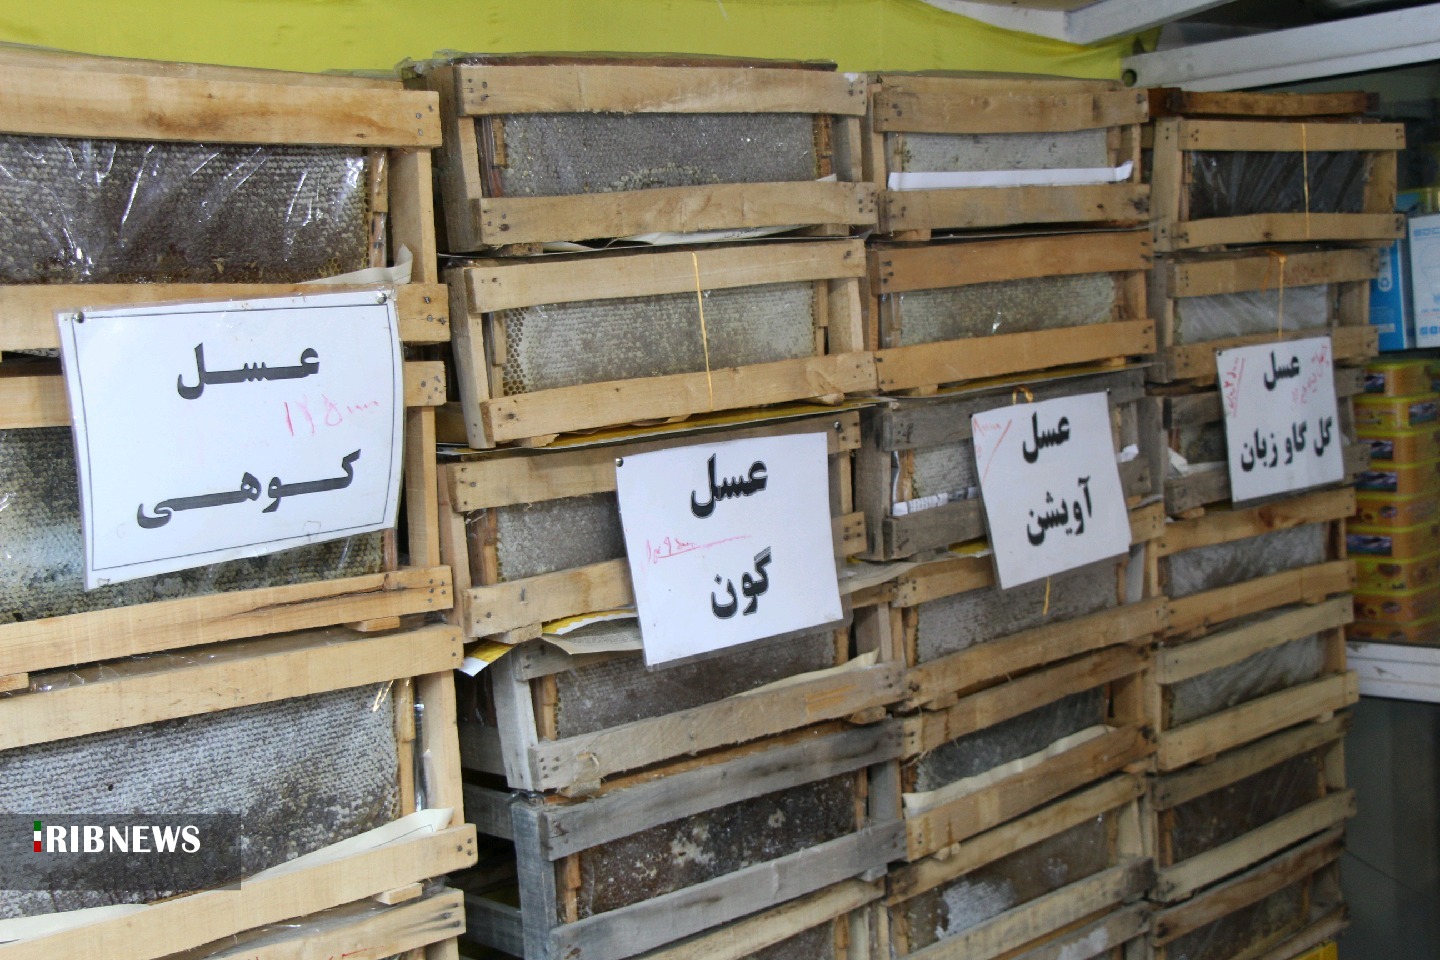 عسل
کوهی
عسل
گون
عسل
آویشن
عسل
گل گاو زبان
IRIBNEWS